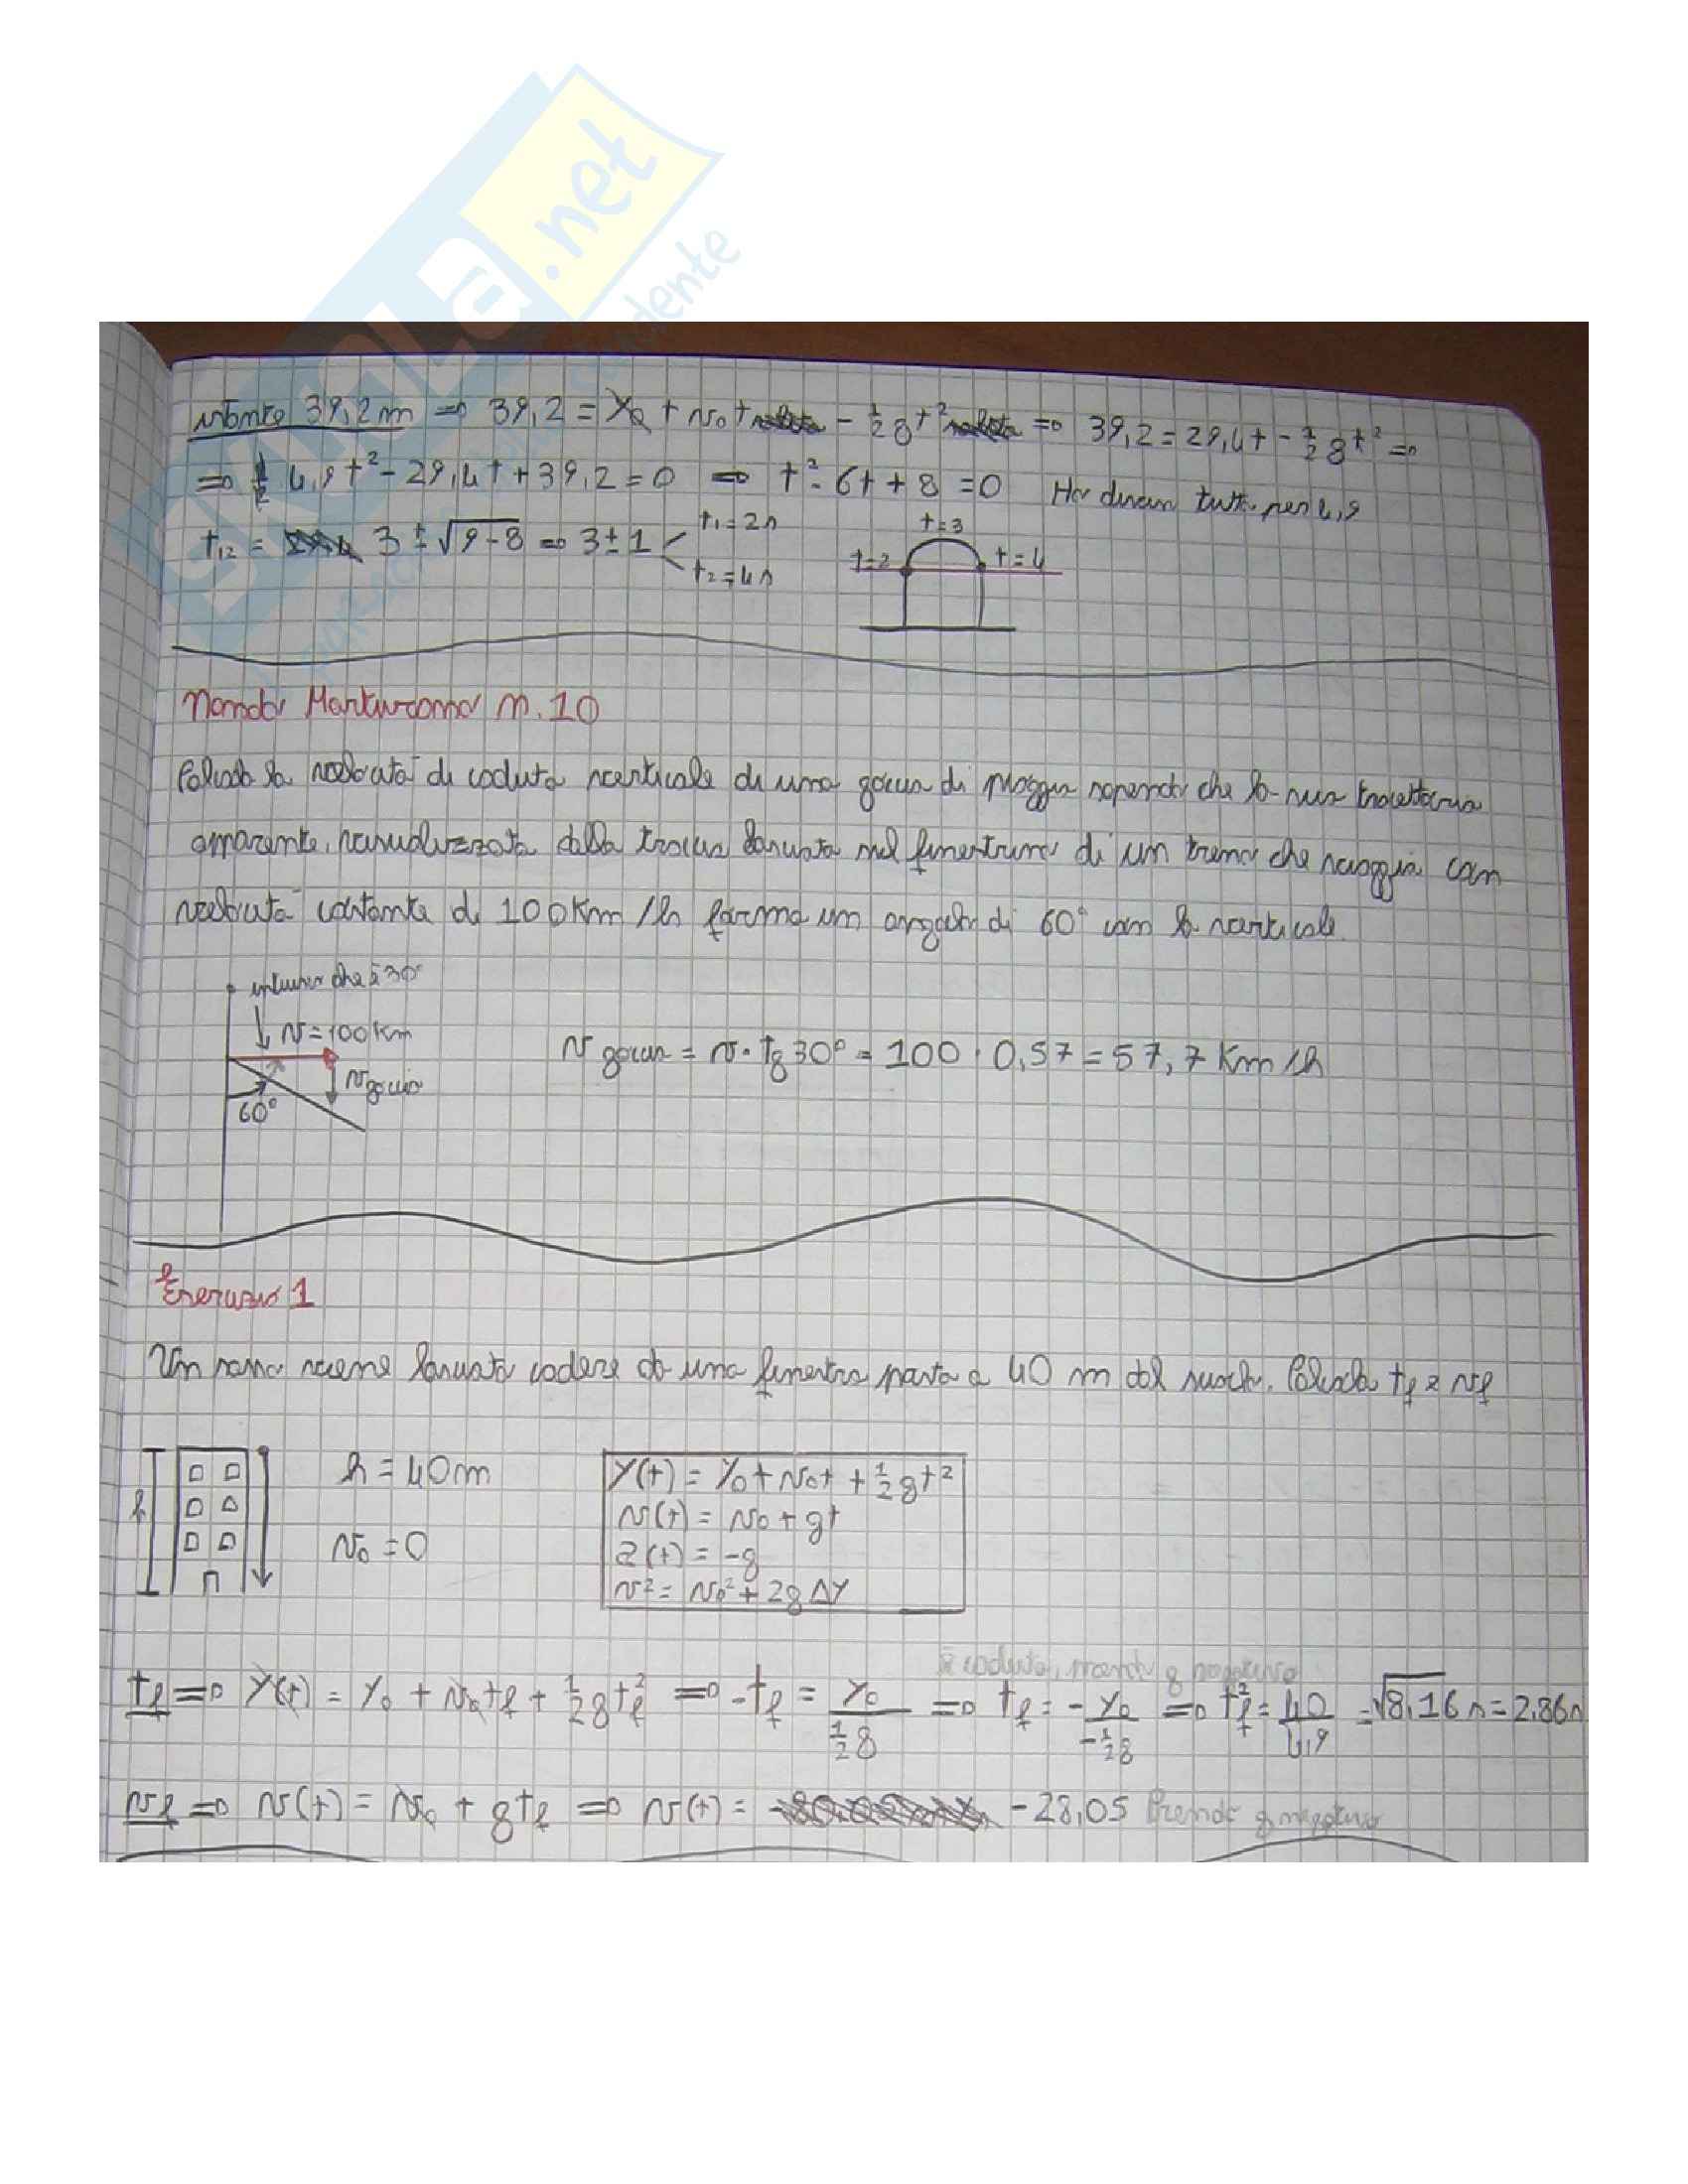 SKUOLA.net
istante 39,2 m => 39,2 = y₀ + v₀t - 1/2 gt² => 39,2 = 29,4t - 1/2 gt² =>
=> 4,9t² - 29,4t + 39,2 = 0 => t² - 6t + 8 = 0 Ho diviso tutto per 4,9
t₁₂ = 3 ± √9-8 => 3 ± 1 t₁ = 2s
t₂ = 4s
t=3
t=2 t=4
n. 10
Calcola la velocità di caduta verticale di una goccia di pioggia sapendo che la sua traiettoria
apparente, visualizzata dalla traccia lasciata nel finestrino di un treno che viaggia con
velocità costante di 100 Km/h forma un angolo di 60° con la verticale.
che è 30°
v = 100 Km
v goccia
60°
v goccia = v · tg 30° = 100 · 0,57 = 57,7 Km/h
Esercizio 1
Un sasso viene lasciato cadere da una finestra posta a 40 m dal suolo. Calcola tf e vf
h
h = 40 m
v₀ = 0
y(t) = y₀ + v₀t + 1/2 gt²
v(t) = v₀ + gt
a(t) = -g
v² = v₀² + 2gΔy
è caduta, prendo g negativo
tf => y(t) = y₀ + v₀tf + 1/2 gtf² => -tf = y₀ / 1/2 g => tf = -y₀ / -1/2 g => tf² = 40 / 4,9 = √8,16 s = 2,86s
vf => v(t) = v₀ + gtf => v(t) = -28,05 Prendo g negativo